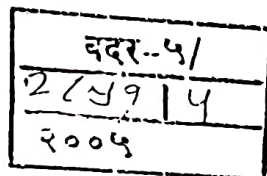 वदर--५/
२८५१।५
२००५